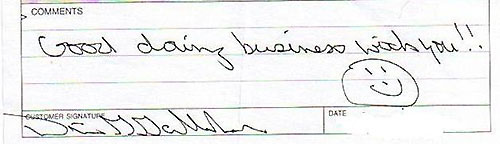 COMMENTS
Good doing business with you!!
CUSTOMER SIGNATURE
DATE